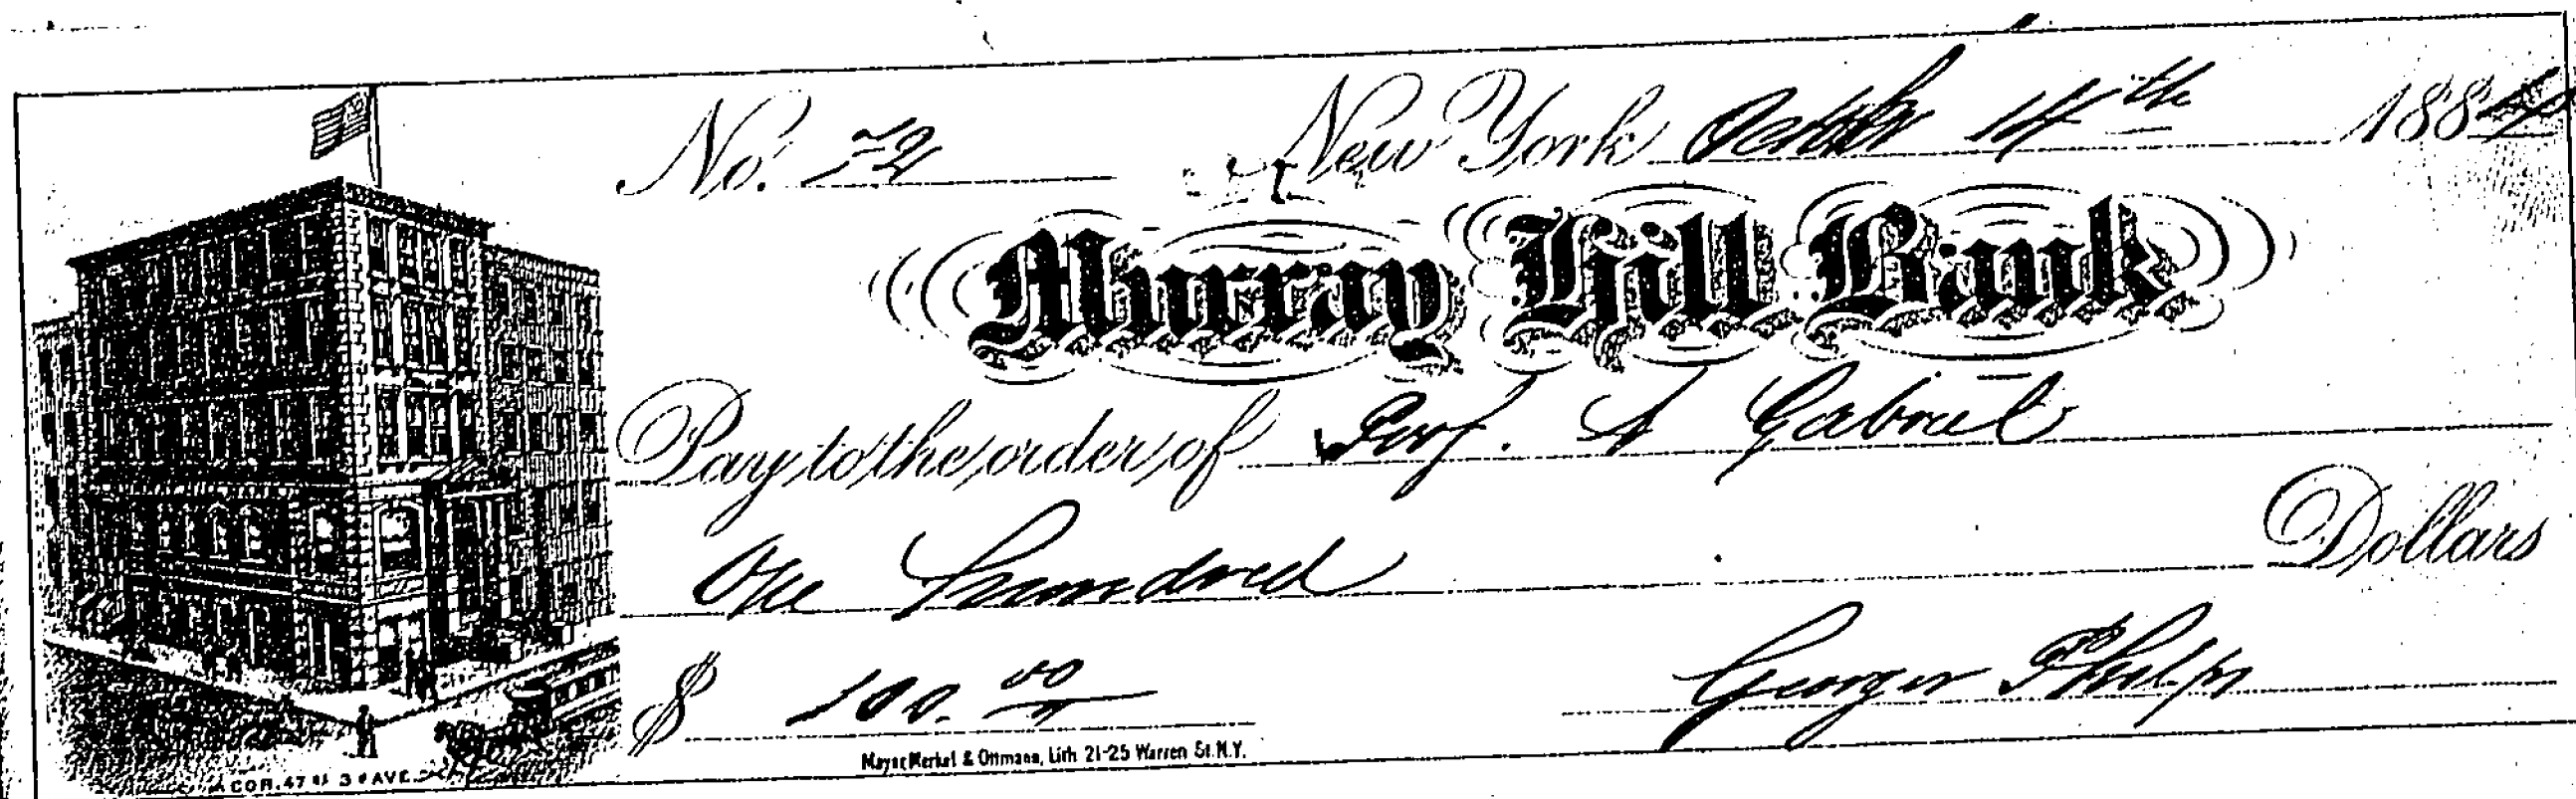 No. 72 New York October 14th 1884
Murray Hill Bank
Pay to the order of Prof. A Gabriel
One hundred Dollars
$ 100.00
George Phelps
Mayer Merkel & Ottmann, Lith 21-25 Warren St. N.Y.
COR. 47 & 3 AVE.